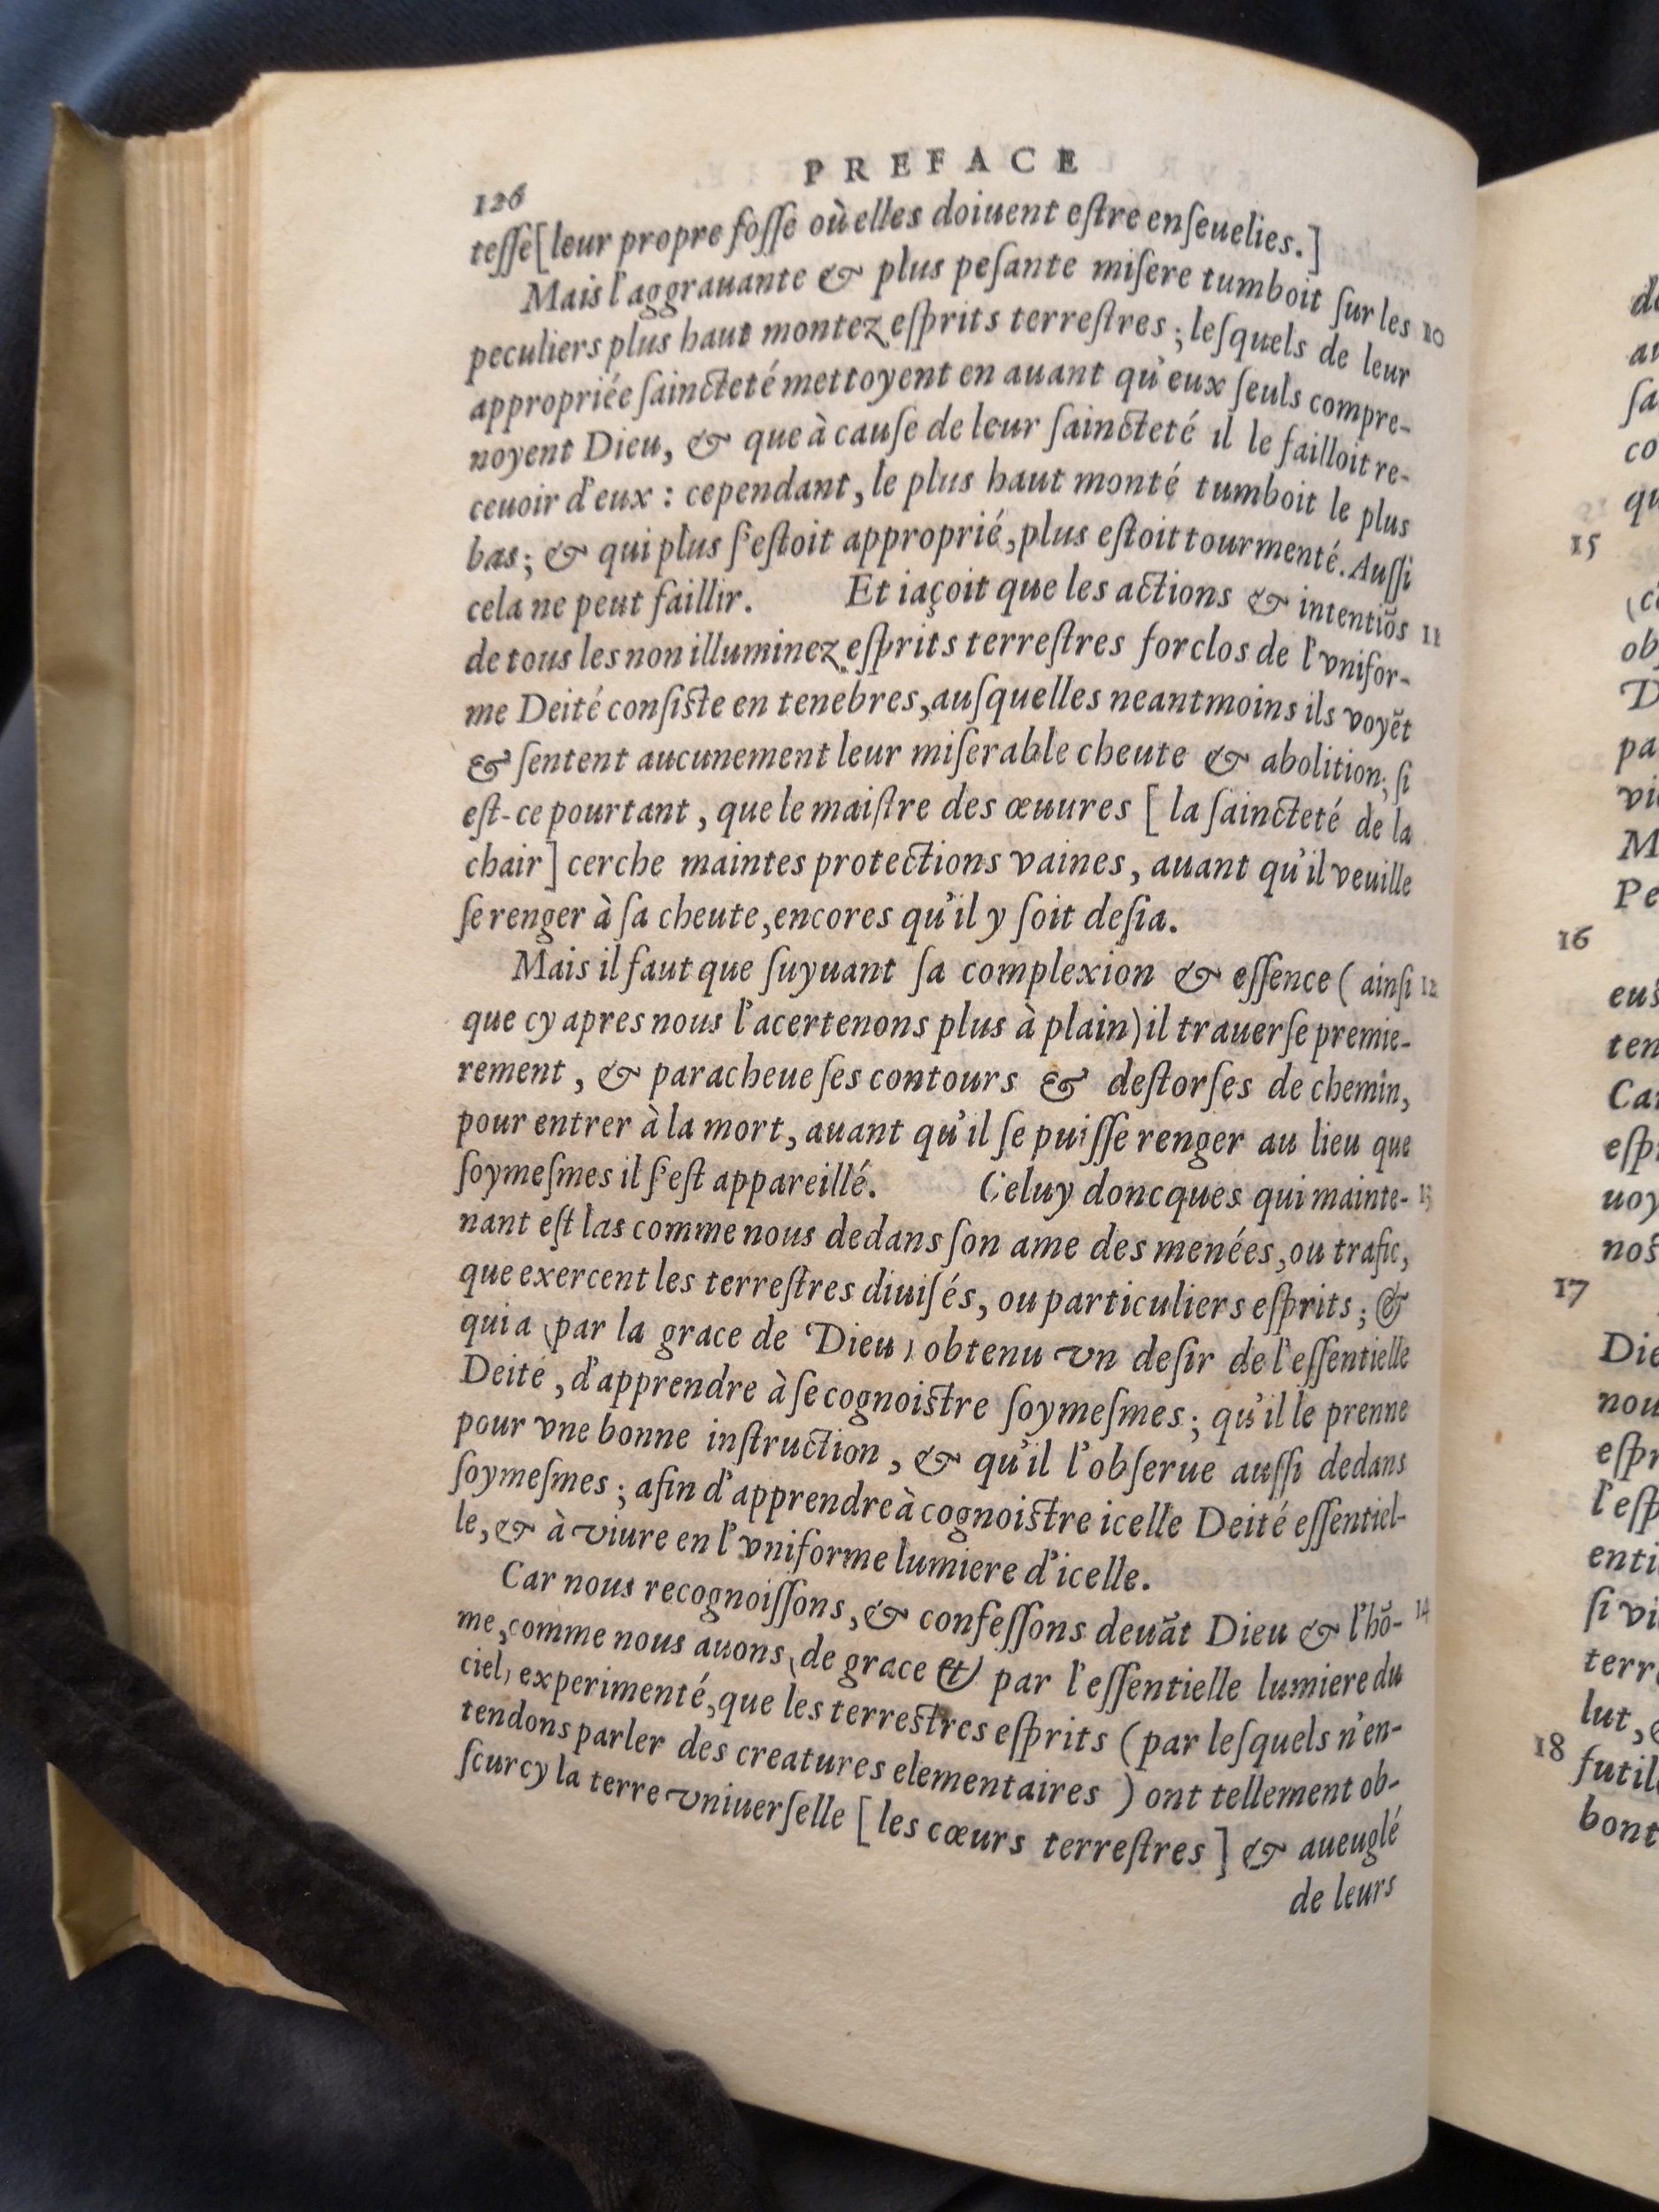 PREFACE
126
teſſe [leur propre foſſe où elles doiuent eſtre enſeuelies.]
Mais l'aggrauante & plus peſante miſere tumboit ſur les 10
peculiers plus haut montez eſprits terreſtres ; leſquels de leur
appropriée ſaincteté mettoyent en auant qu'eux ſeuls compre-
noyent Dieu, & que à cauſe de leur ſaincteté il le failloit re-
ceuoir d'eux : cependant, le plus haut monté tumboit le plus
bas ; & qui plus ſ'eſtoit approprié, plus eſtoit tourmenté. Auſſi
cela ne peut faillir. Et iaçoit que les actions & intentiõs 11
de tous les non illuminez eſprits terreſtres forclos de l'vnifor-
me Deité conſiſte en tenebres, auſquelles neantmoins ils voyẽt
& ſentent aucunement leur miſerable cheute & abolition ; ſi
eſt-ce pourtant, que le maiſtre des œuures [ la ſaincteté de la
chair ] cerche maintes protections vaines, auant qu'il veuille
ſe renger à ſa cheute, encores qu'il y ſoit deſia.
Mais il faut que ſuyuant ſa complexion & eſſence ( ainſi 12
que cy apres nous l'acertenons plus à plain) il trauerſe premie-
rement, & paracheue ſes contours & deſtorſes de chemin,
pour entrer à la mort, auant qu'il ſe puiſſe renger au lieu que
ſoymeſmes il ſ'eſt appareillé. Celuy doncques qui mainte- 13
nant eſt las comme nous dedans ſon ame des menées, ou trafic,
que exercent les terreſtres diuiſés, ou particuliers eſprits ; &
qui a (par la grace de Dieu) obtenu vn deſir de l'eſſentielle
Deité, d'apprendre à ſe cognoiſtre ſoymeſmes ; qu'il le prenne
pour vne bonne inſtruction, & qu'il l'obſerue auſſi dedans
ſoymeſmes ; afin d'apprendre à cognoiſtre icelle Deité eſſentiel-
le, & à viure en l'vniforme lumiere d'icelle.
Car nous recognoiſſons, & confeſſons deuãt Dieu & l'hõ- 14
me, comme nous auons (de grace et) par l'eſſentielle lumiere du
ciel) experimenté, que les terreſtres eſprits (par leſquels n'en-
tendons parler des creatures elementaires ) ont tellement ob-
ſcurcy la terre vniuerſelle [ les cœurs terreſtres ] & aueuglé
de leurs
de
ſa
co
qu
15
ob
pa
16
ten
nos
17
Die
nou
l'eſp
enti
ſi vi
terr
lut,
18
futil
bont